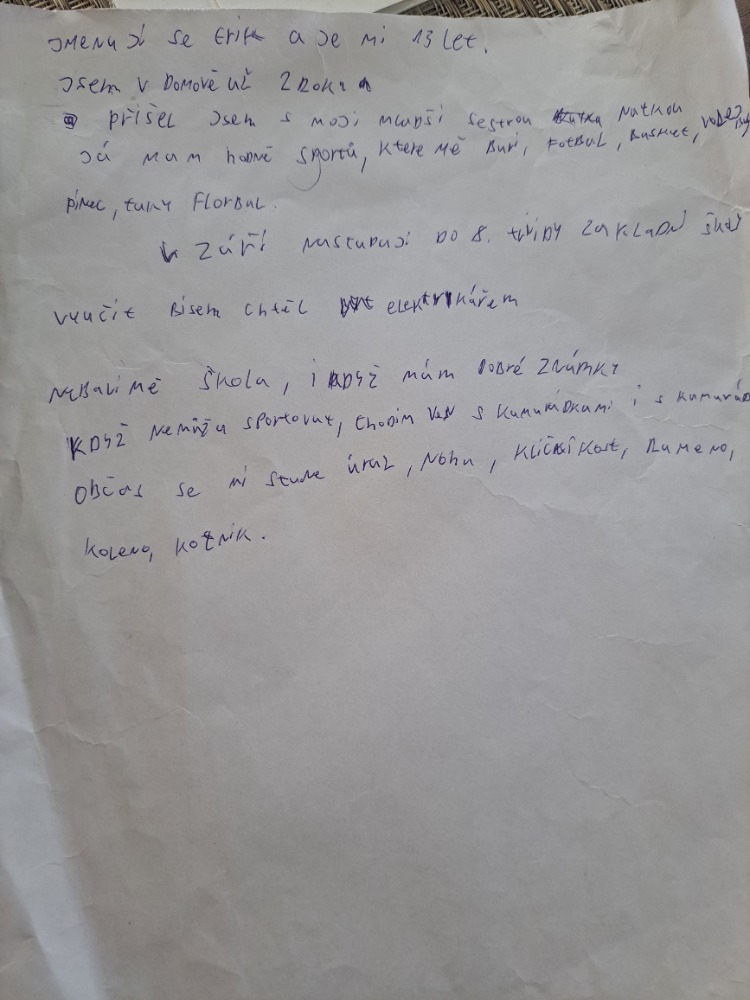 Jmenuji se Erik a je mi 13 let.
Jsem v Domově už 2 roky
přišel jsem s moji mladší sestrou Natkou
Já mam hodně sportů, ktere mě baví, Fotbal, Basket,
pinec, Florbal.
V Září nastupuji do 8. třídy Zakladní
vyučit Bisem chtěl elektrikářem
Nebaví mě škola, i když mám dobré známky
Když nemůžu sportovat, chodim ven s kamarádkami i s
občas se mi stane úraz, Noha, Klíční Kost, Rameno,
Koleno, Kotník.